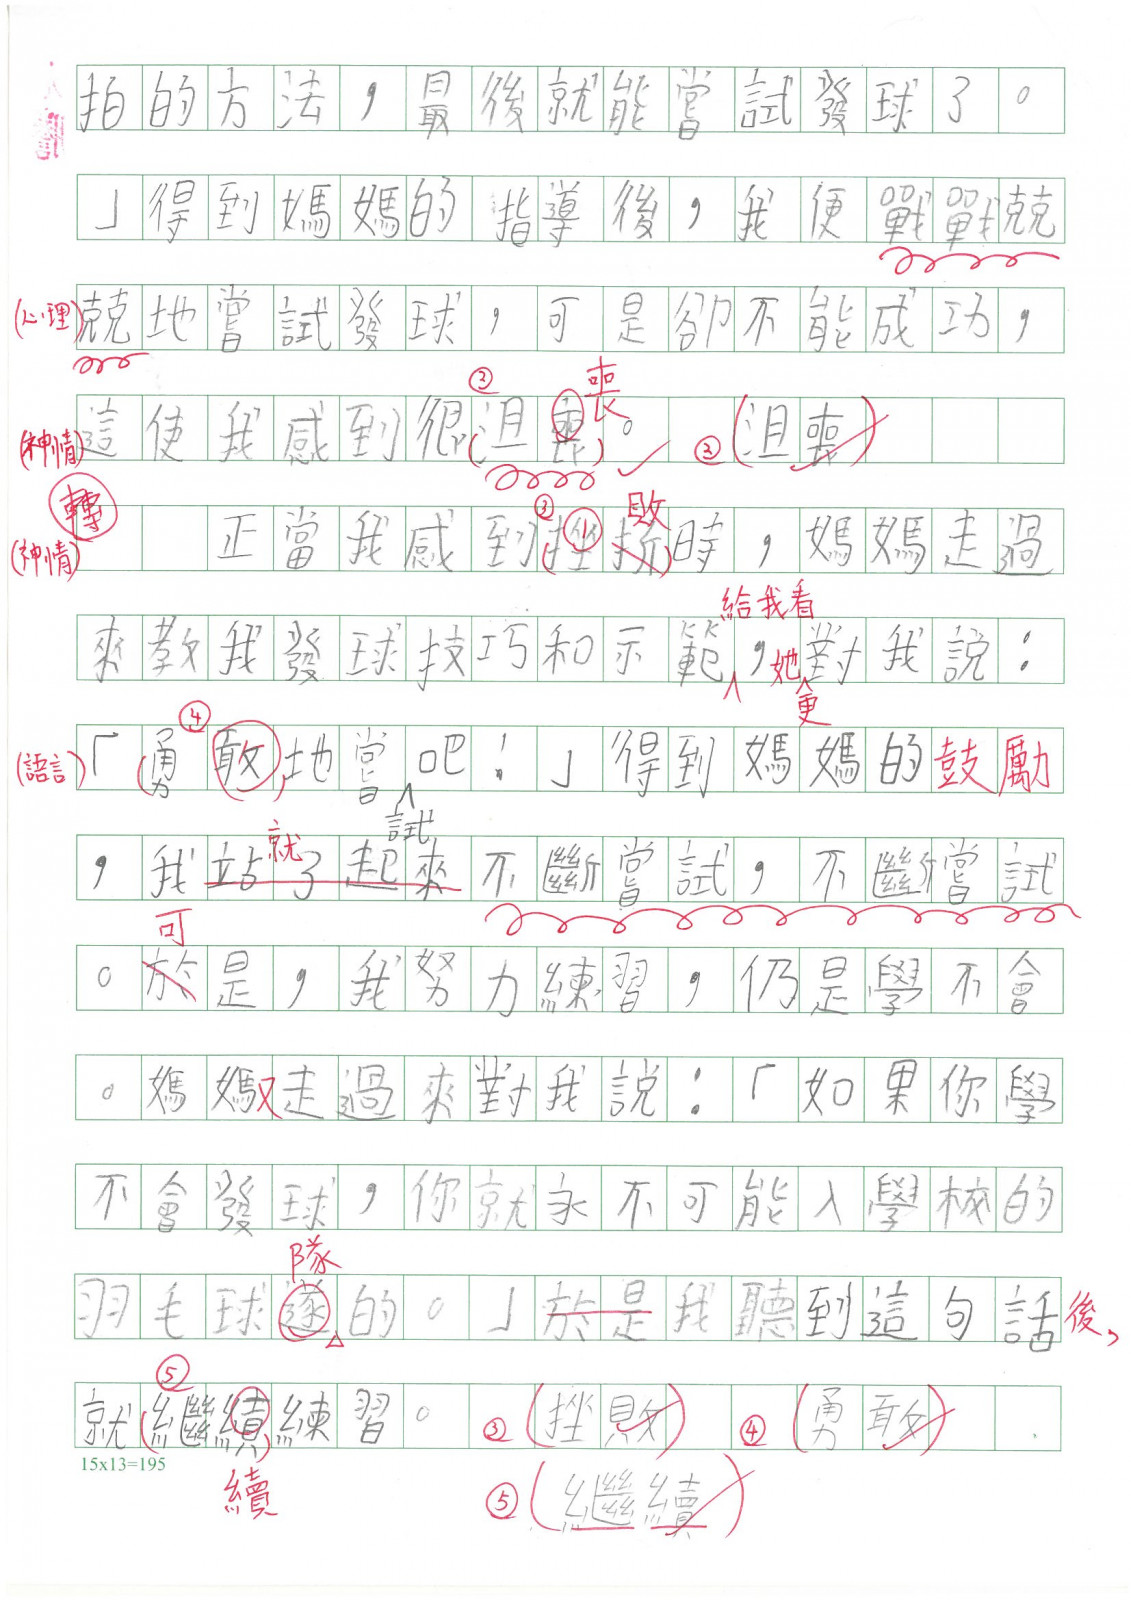 拍的方法，最後就能嘗試發球了。
」得到媽媽的指導後，我便戰戰兢
(心理)兢地嘗試發球，可是卻不能成功，
② 喪
(神情)這使我感到很(沮喪)。 ③(沮喪)
轉
③ 敗
(神情)正當我感到(挫折)時，媽媽走過
給我看
來教我發球技巧和示範，她對我說：
更
④
(語言)「(勇敢)地嘗吧！」得到媽媽的鼓勵
試
就
，我站了起來不斷嘗試，不斷嘗試
可
。於是，我努力練習，仍是學不會
。媽媽又走過來對我說：「如果你學
不會發球，你就永不可能入學校的
隊
羽毛球遂的。」於是我聽到這句話後，
⑤
就(繼續)練習。 ③(挫敗) ④(勇敢)
15x13=195
續 ⑤(繼續)